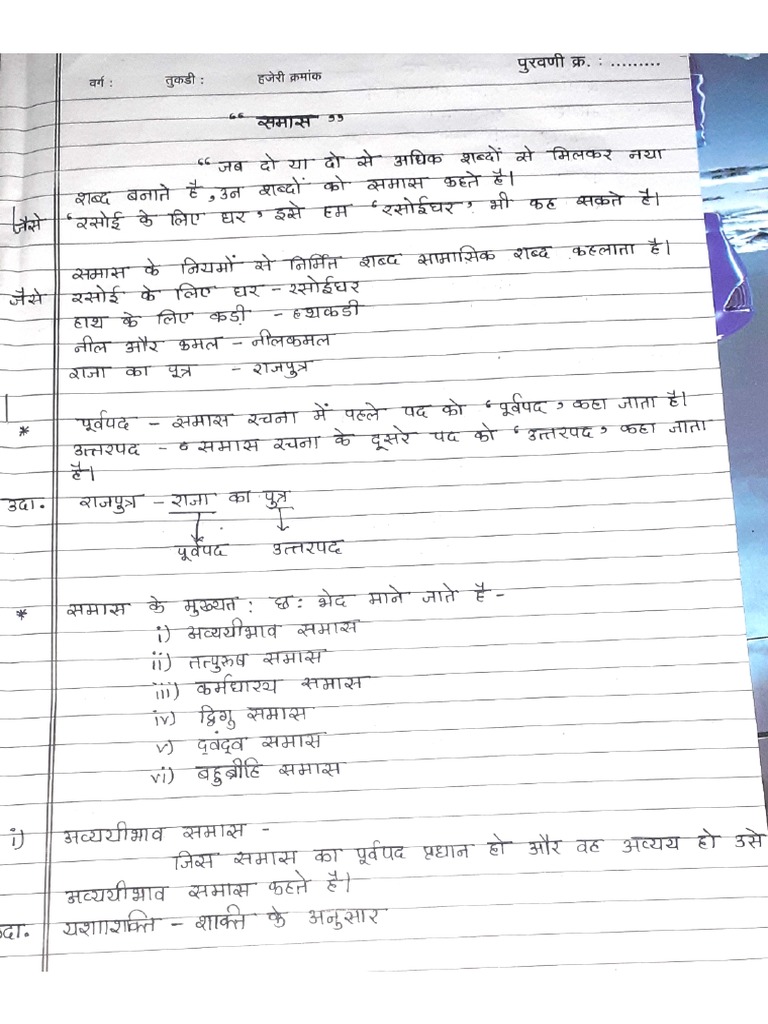 पुरवणी क्र. : .........
वर्ग :  तुकडी :  हजेरी क्रमांक
“ समास ”
“ जब दो या दो से अधिक शब्दों से मिलकर नया
शब्द बनाते है, उन शब्दों को समास कहते है।
जैसे ‘रसोई के लिए घर’ इसे हम ‘रसोईघर’ भी कह सकते है।
समास के नियमों से निर्मित शब्द सामासिक शब्द कहलाता है।
जैसे रसोई के लिए घर – रसोईघर
हाथ के लिए कड़ी – हथकडी
नील और कमल – नीलकमल
राजा का पूत्र – राजपुत्र
* पूर्वपद – समास रचना में पहले पद को ‘पूर्वपद’ कहा जाता है।
उत्तरपद – समास रचना के दूसरे पद को ‘उत्तरपद’ कहा जाता
है।
उदा. राजपुत्र – राजा का पुत्र
पूर्वपद  उत्तरपद
* समास के मुख्यत: छ: भेद माने जाते है –
i) अव्ययीभाव समास
ii) तत्पुरुष समास
iii) कर्मधारय समास
iv) द्विगु समास
v) द्वंद्व समास
vi) बहुब्रीहि समास
i) अव्ययीभाव समास –
जिस समास का पूर्वपद प्रधान हो और वह अव्यय हो उसे
अव्ययीभाव समास कहते है।
उदा. यथाशक्ति – शक्ति के अनुसार